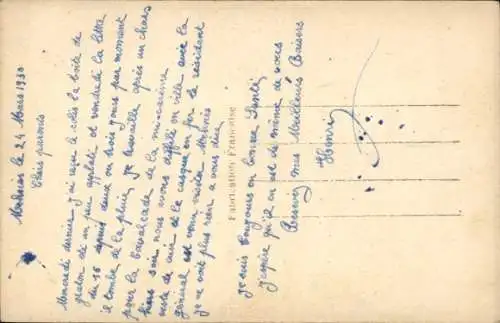 Meknès le 24 Mars 1930
Chers parents
Mercredi dernier j'ai reçu le colis la boîte de
gâteau dé un peu aplatie et vendredi la lettre
du 16 depuis deux ou trois jours par moment
il tombe de la pluie, je travaille après un chars
pour la Cavalcade de la mi-carême
hiers soir nous avons défilé en ville avec la
veste de cuir et le casque en fer le résident
général est venu visiter Meknès
je ne voit plus rien a vous dire
je suis toujours en bonne Santé
j'espère qu'il en est de même de vous
Recevez mes Meilleurs Baisers
Henri
Fabrication Française